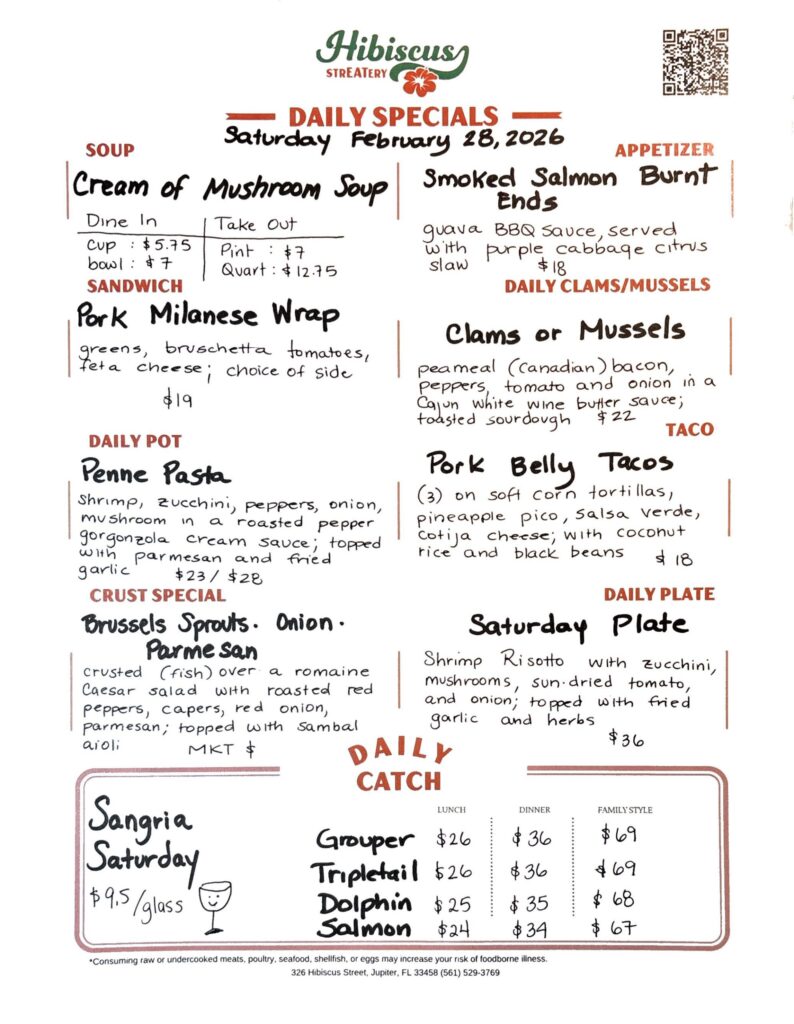 Hibiscus
STREATERY
DAILY SPECIALS
Saturday February 28, 2026
SOUP
Cream of Mushroom Soup
Dine In | Take Out
Cup : $5.75 | Pint : $7
bowl : $7 | Quart : $12.75
APPETIZER
Smoked Salmon Burnt
Ends
guava BBQ sauce, served
with purple cabbage citrus
slaw $18
SANDWICH
Pork Milanese Wrap
greens, bruschetta tomatoes,
feta cheese; choice of side
$19
DAILY CLAMS/MUSSELS
Clams or Mussels
peameal (Canadian) bacon,
peppers, tomato and onion in a
Cajun white wine butter sauce;
toasted sourdough $22
DAILY POT
Penne Pasta
Shrimp, zucchini, peppers, onion,
mushroom in a roasted pepper
gorgonzola cream sauce; topped
with parmesan and fried
garlic $23/ $28
TACO
Pork Belly Tacos
(3) on soft corn tortillas,
pineapple pico, salsa verde,
cotija cheese; with coconut
rice and black beans $18
CRUST SPECIAL
Brussels Sprouts · Onion ·
Parmesan
crusted (fish) over a romaine
Caesar salad with roasted red
peppers, capers, red onion,
parmesan; topped with sambal
aioli MKT $
DAILY PLATE
Saturday Plate
Shrimp Risotto with zucchini,
mushrooms, sun-dried tomato,
and onion; topped with fried
garlic and herbs
$36
DAILY
CATCH
Sangria
Saturday
$9.5/glass
LUNCH DINNER FAMILY STYLE
Grouper $26 $36 $69
Tripletail $26 $36 $69
Dolphin $25 $35 $68
Salmon $24 $34 $67
*Consuming raw or undercooked meats, poultry, seafood, shellfish, or eggs may increase your risk of foodborne illness.
326 Hibiscus Street, Jupiter, FL 33458 (561) 529-3769